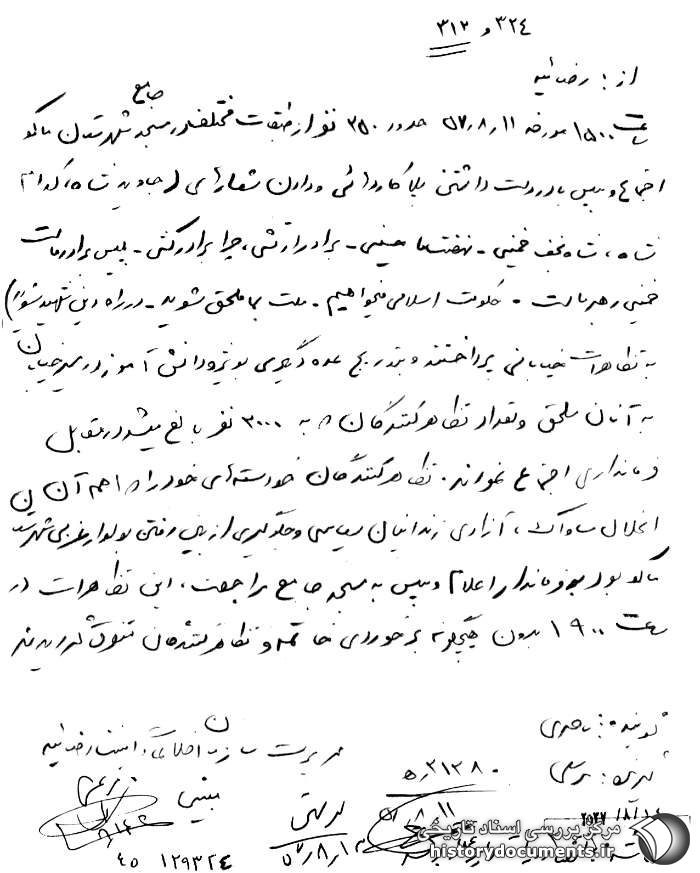 ۳۲۴ و ۳۱۲
از: رضائیه
ساعت ۱۵۰۰ مورخه ۵۷/۸/۱۱ حدود ۳۵۰ نفر از طبقات مختلف در مسجد جامع شهرستان ماکو
اجتماع و سپس با در دست داشتن پلاکاردهائی و دادن شعارهای (جاوید شاه، کدام
شاه، شاه نجف خمینی - نهضت ما حسینی - برادر ارتشی، چرا برادرکشی - پلیس برادر ماست
خمینی رهبر ماست - حکومت اسلامی میخواهیم - ملت بما ملحق شوید - در راه دین شهید شوید)
به تظاهرات خیابانی پرداختند و بتدریج عده دیگری بویژه دانش آموز در مسیر خیابان
به آنان ملحق و تعداد تظاهرکنندگان به ۳۰۰۰ نفر بالغ میشد در مقابل
فرمانداری اجتماع نمودند. تظاهرکنندگان خواسته‌های خود را که اهم آن
انحلال ساواک، آزادی زندانیان سیاسی و جلوگیری از بین رفتن بولوار غربی شهرستان
ماکو بود به فرماندار اعلام و سپس به مسجد جامع مراجعت، این تظاهرات در
ساعت ۱۹۰۰ بدون هیچگونه برخوردی خاتمه و تظاهرکنندگان متفرق گردیدند
گوینده: ناصری
مدیریت سازمان اطلاعات و امنیت رضائیه
گیرنده:
۵/۲۱۳۸۰
۵۷/۸/۱۱
۴۵ ۱۲۹۳۲۴
مرکز بررسی اسناد تاریخی
historydocuments.ir